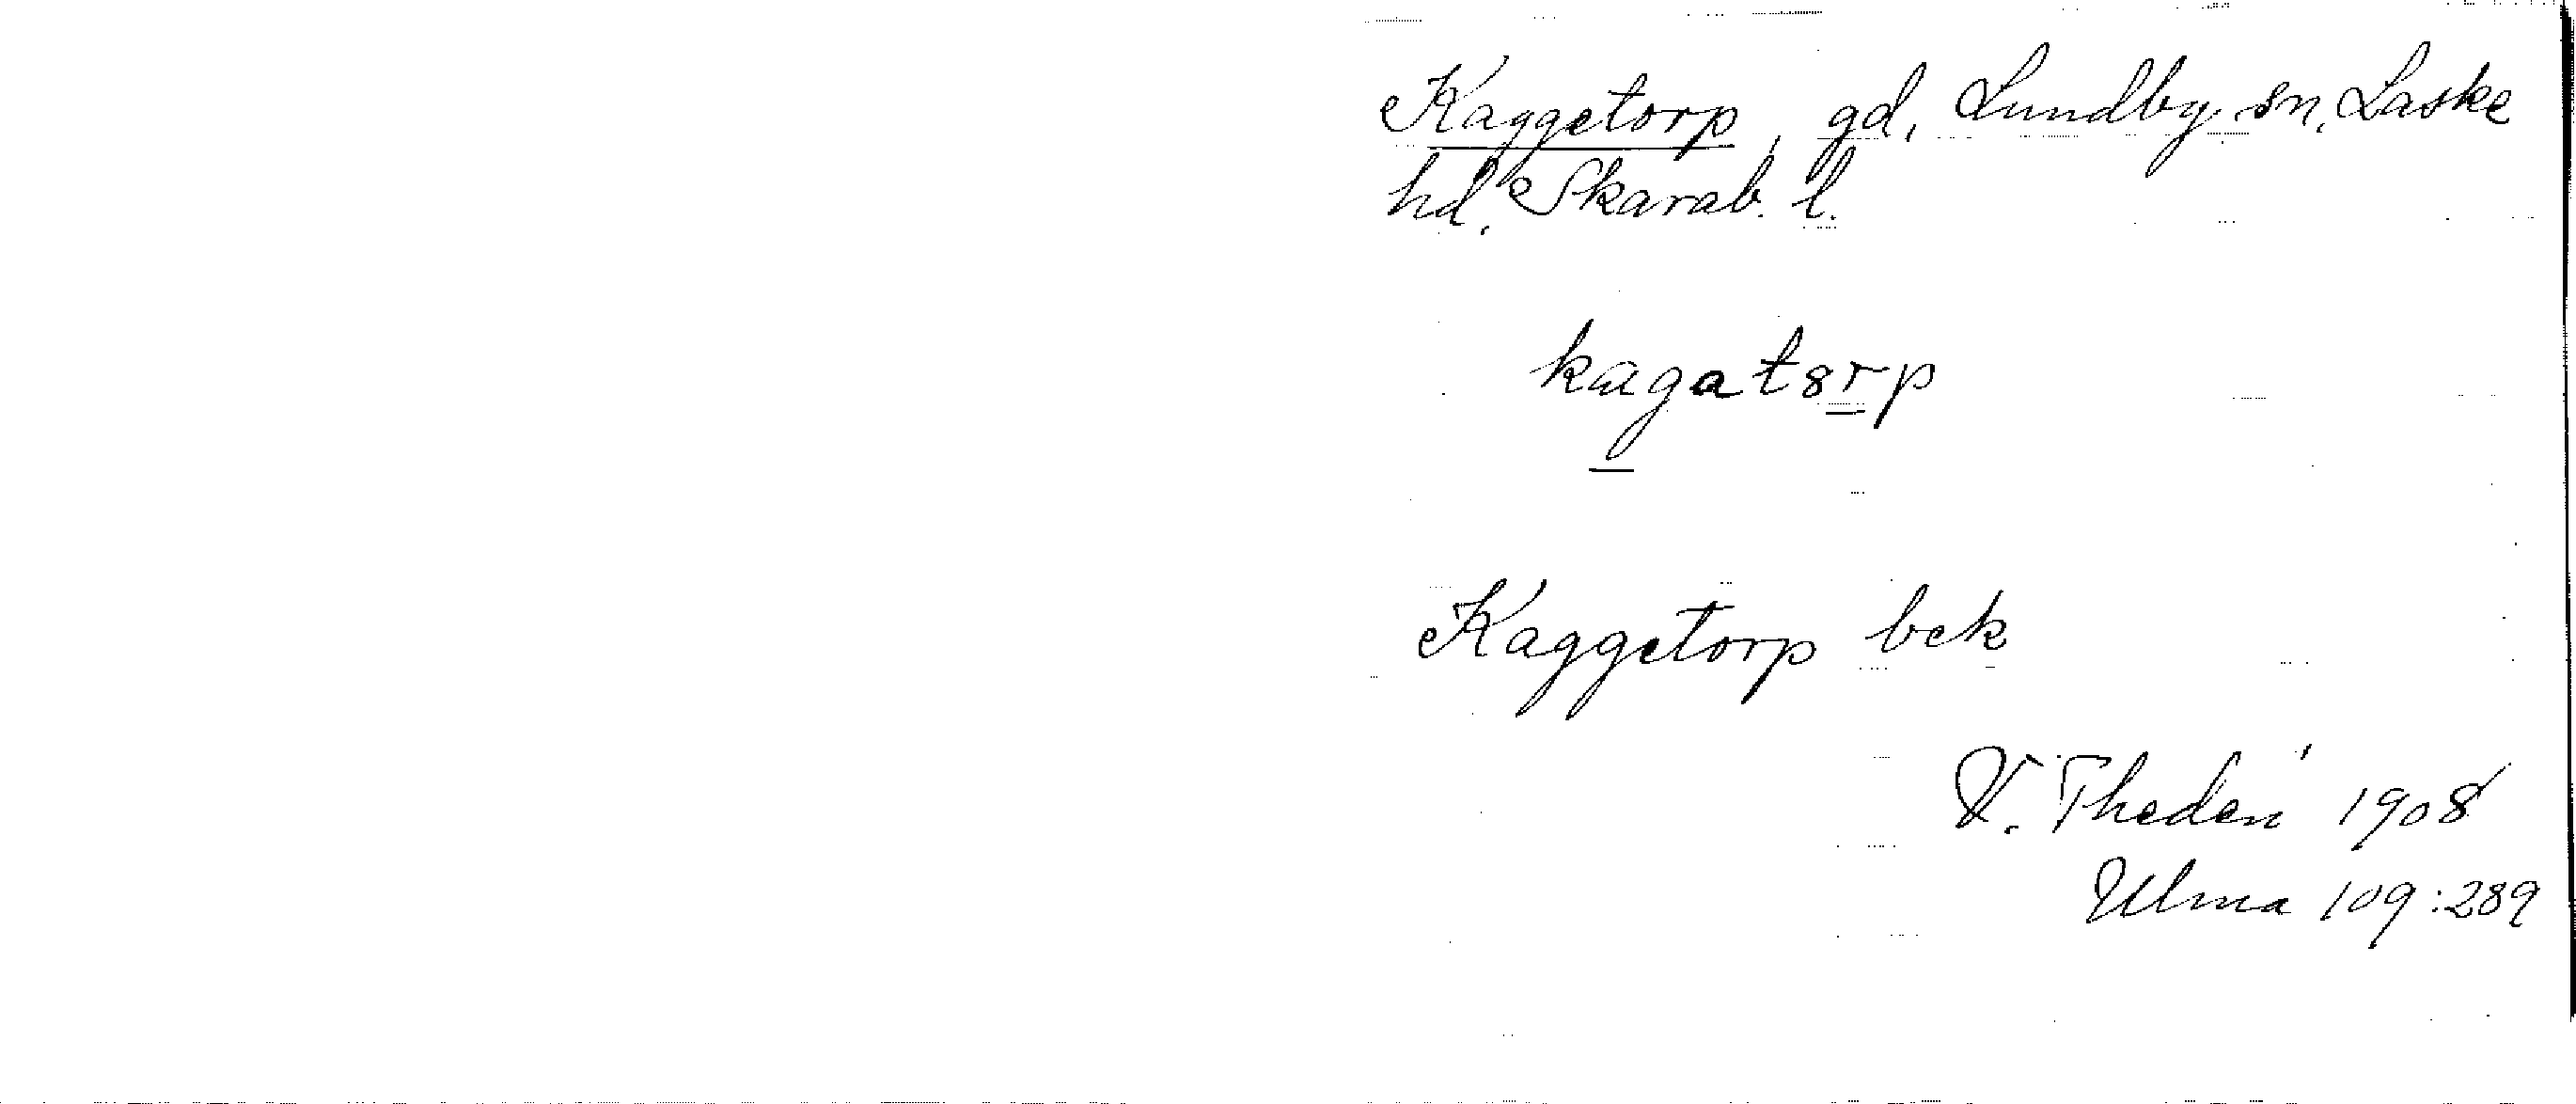 Kaggetorp, gd, Lundby sn, Laske
hd, Skarab. l.
kagatsrp
Kaggetorp bek
V. Thedén 1908
Ulma 109:289